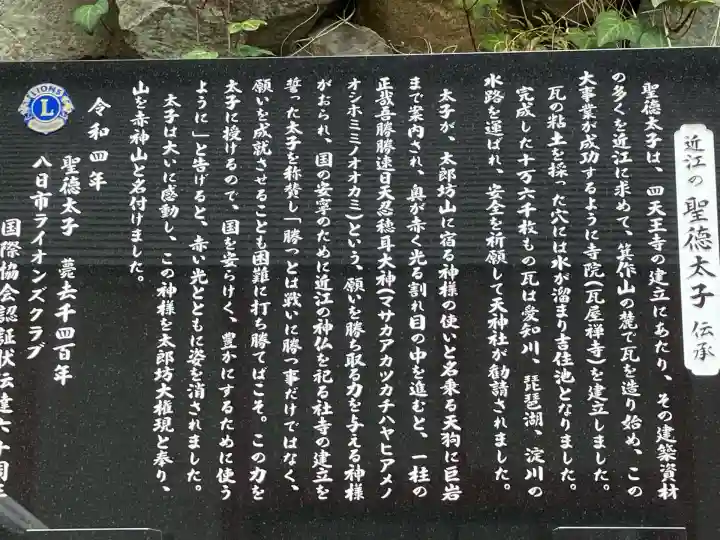 近江の 聖徳太子 伝承
聖徳太子は、四天王寺の建立にあたり、その建築資材
の多くを近江に求めて、箕作山の麓で瓦を造り始め、この
大事業が成功するように寺院(瓦屋禅寺)を建立しました。
瓦の粘土を採った穴には水が溜まり吉住池となりました。
完成した十万六千枚もの瓦は愛知川、琵琶湖、淀川の
水路を運ばれ、安全を祈願して天神社が勧請されました。
太子が、太郎坊山に宿る神様の使いと名乗る天狗に巨岩
まで案内され、奥が赤く光る割れ目の中を進むと、一柱の
正哉吾勝勝速日天忍穂耳大神(マサカアカツカチハヤヒアメノ
オシホミミノオオカミ)という、願いを勝ち取る力を与える神様
がおられ、国の安寧のために近江の神仏を祀る社寺の建立を
誓った太子を称賛し「勝つとは戦いに勝つ事だけではなく、
願いを成就させることも困難に打ち勝てばこそ。この力を
太子に授けるので、国を安らけく、豊かにするために使う
ように」と告げると、赤い光とともに姿を消されました。
太子は大いに感動し、この神様を太郎坊大権現と奉り、
山を赤神山と名付けました。
令和四年
聖徳太子 薨去千四百年
八日市ライオンズクラブ
国際協会認証状伝達六十周年
LIONS
L